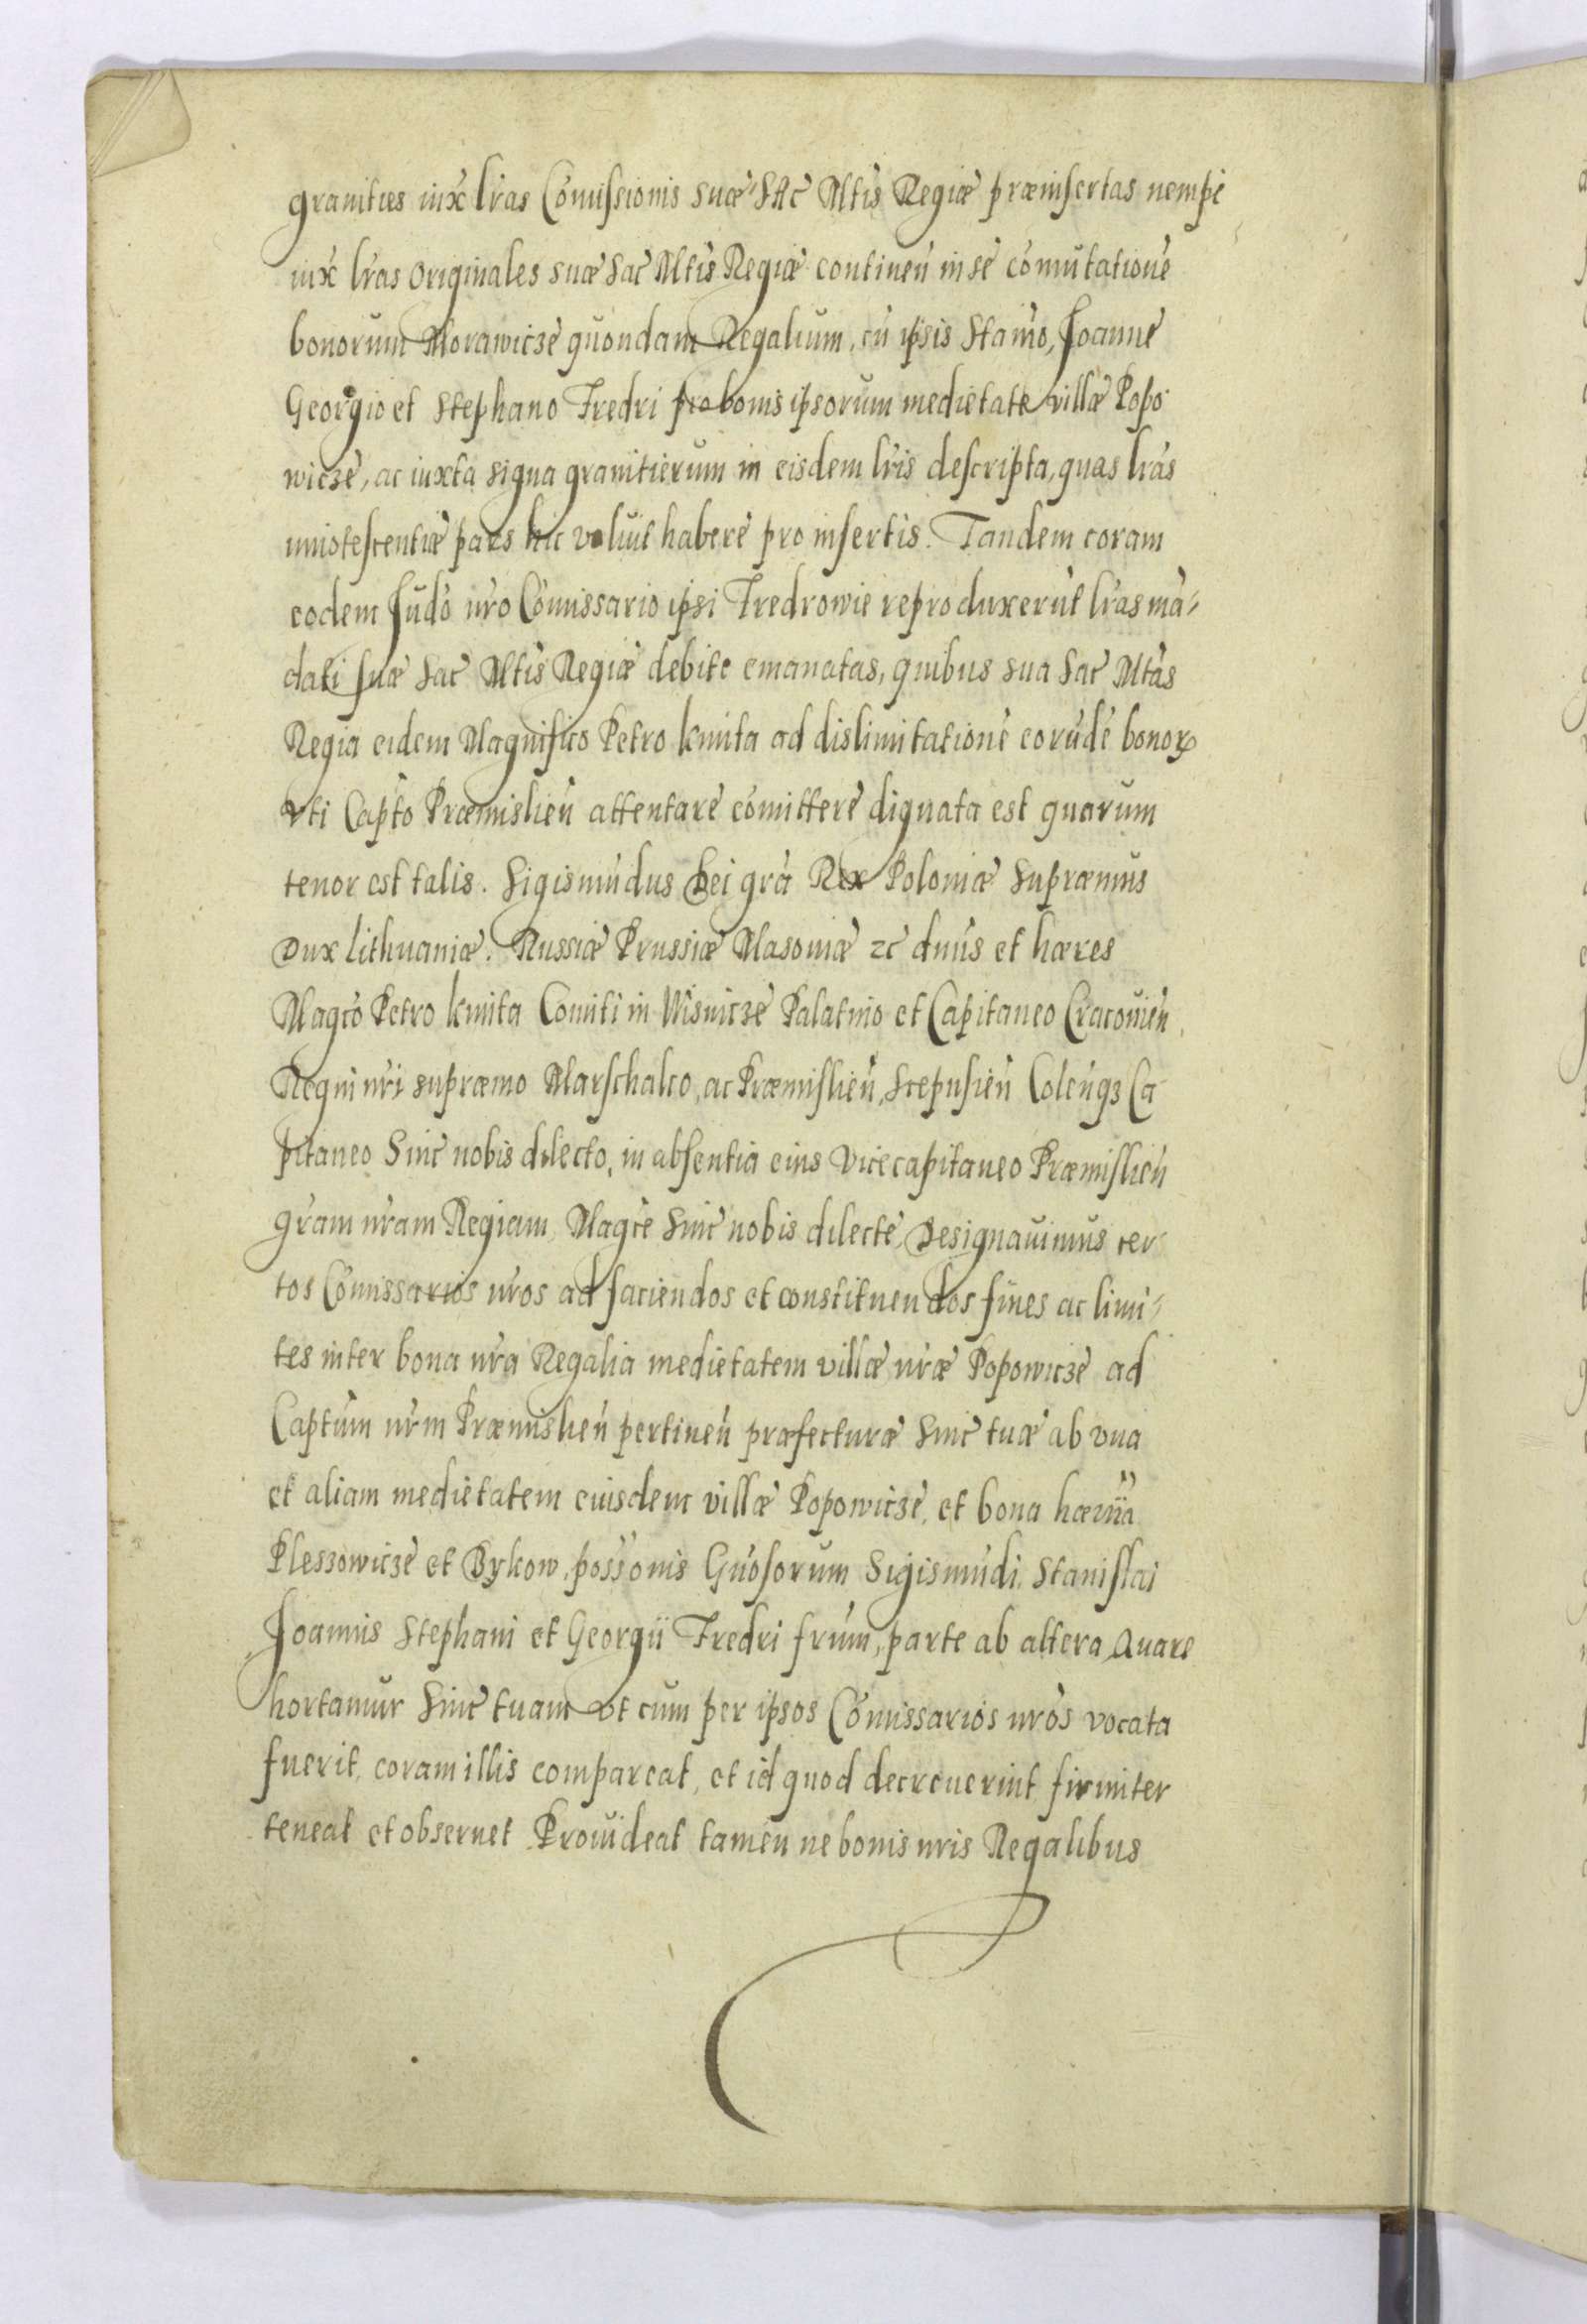 granities iux̃ lras Com̃issionis suæ SAc Mtis Regiæ præinsertas nempe
iux̃ lras Originales suæ Sac Mtis Regiæ continen̄ in se com̃utationẽ
bonorum Morawicze quondam Regalium, cũ ipsis Stanio, Joanne
Georgio et Stephano Fredri pro bonis ipsorum medietate villæ Popo
wicze, ac iuxta signa granitierum in eisdem lris descripta, quas lras
innotescentiæ pars hic voluit habere pro insertis. Tandem coram
eodem Judõ nro Com̃issario ipsi Fredrowie reproduxerũt lras mã-
dati suæ Sac Mtis Regiæ debite emanatas, quibus sua Sac Mtas
Regia eidem Magnifico Petro kmita ad dislimitationẽ eorũdẽ bonorꝝ
vti Capto Præmislien̄ attentare com̃ittere dignata est quarum
tenor est talis. Sigismũdus Dei gra Rex Poloniæ Supræmus
Dux Lithuaniæ. Russiæ Prussiæ Masoviæ zc dnus et hæres
Magco Petro kmita Comiti in Wisnicze Palatino et Capitaneo Cracovien̄
Regni nri supræmo Marschalco, ac Præmislien̄, Scepusien̄ Colenqz Ca-
pitaneo Sinc nobis dilecto, in absentia eius Vicecapitaneo Præmislien̄
gram nram Regiam, Magce Sinc nobis dilecte, Designauimus cer
tos Com̃issarios nros ad faciendos et constituendos fines ac limi-
tes inter bona nra Regalia medietatem villæ nræ Popowicze ad
Captum nrm Præmislien̄ pertinen̄ præfecturæ Sinc tuæ ab vna
et aliam medietatem eiusdem villæ Popowicze, et bona hærria
Pleszowicze et Bykow, posso͂nis Gnosorum Sigismũdi, Stanislai
Joannis Stephani et Georgii Fredri frum, parte ab altera, Quare
hortamur Sinc tuam vt cum per ipsos Com̃issarios nros vocata
fuerit, coram illis compareat, et id quod decreuerint firmiter
teneat et obseruet Prouideat tamen ne bonis nris Regalibus